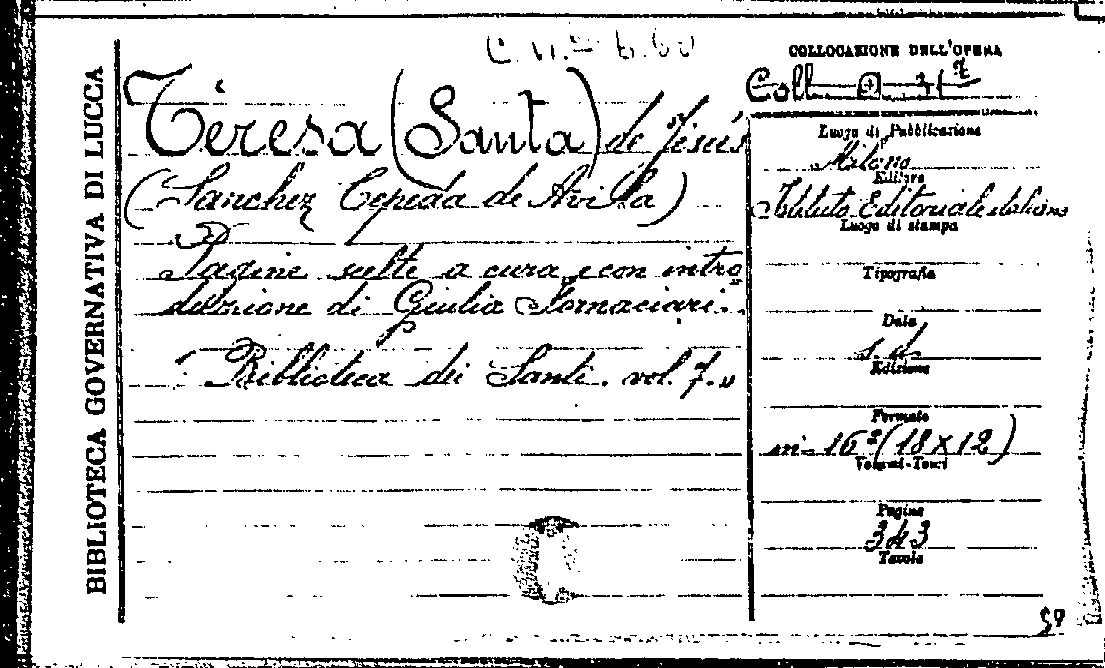 BIBLIOTECA GOVERNATIVA DI LUCCA
Teresa (Santa) de Jesús
(Sanchez Cepeda de Avilla)
Pagine scelte a cura e con intro
duzione di Giulia Fornaciari.
"Biblioteca dei Santi. vol. 7."
COLLOCAZIONE DELL'OPERA
Coll.
Luogo di Pubblicazione
Milano
Editore
Istituto Editoriale italiano
Luogo di stampa
Tipografia
Data
s. d.
Edizione
Formato
in-16º (18 x 12)
Volumi-Tomi
Pagine
343
Tavole